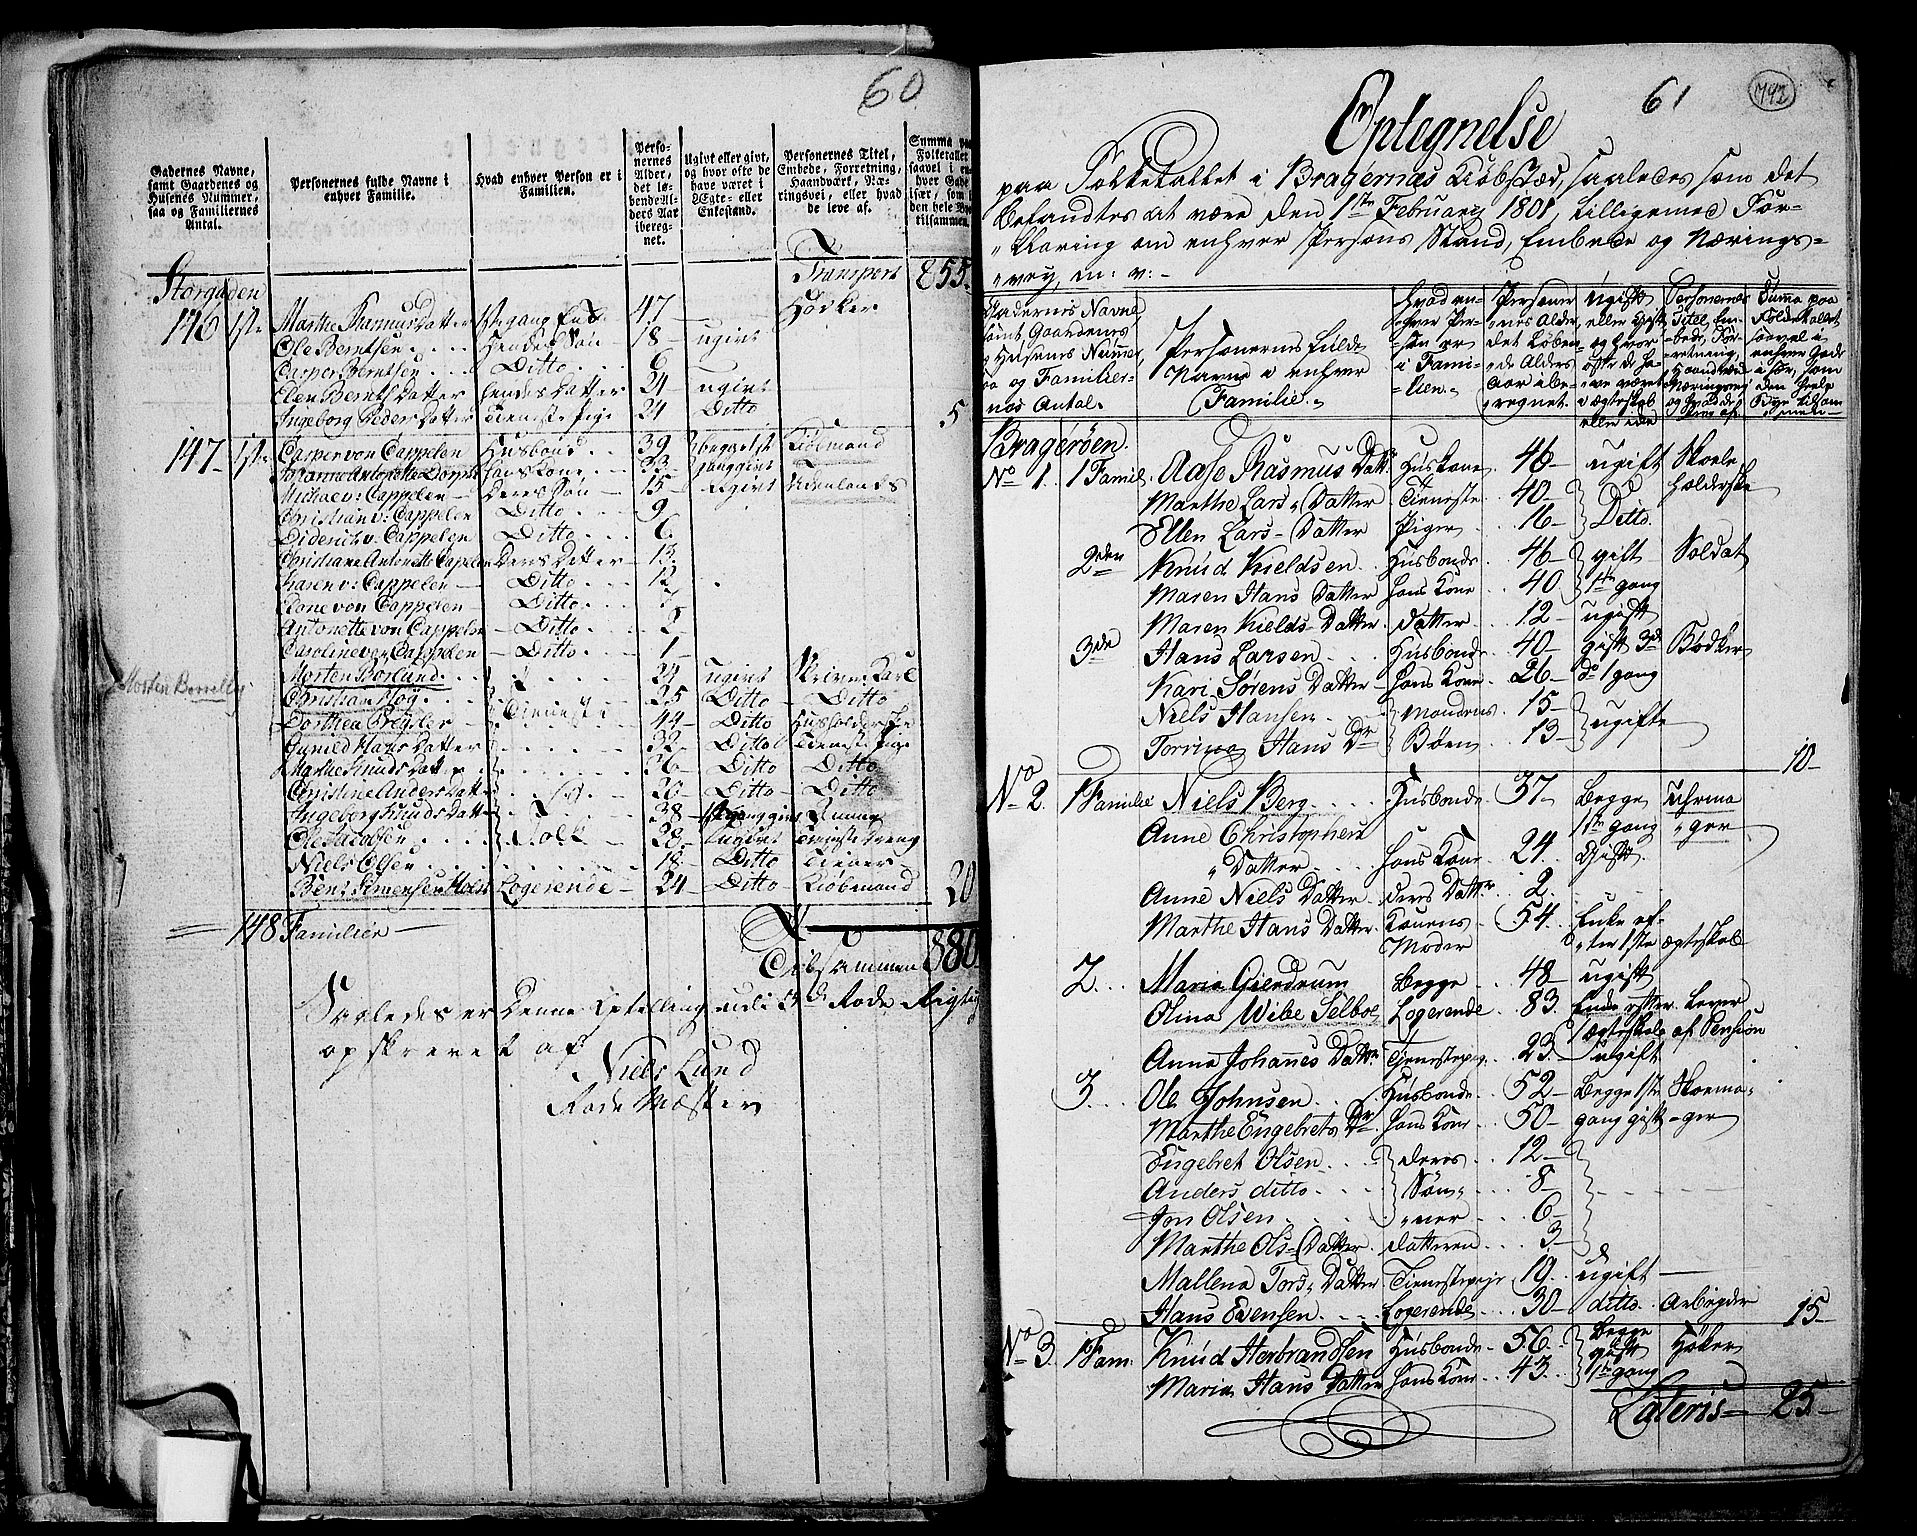 60
Gadernes Navne, samt Gaardenes og Husenes Nummer, saa og Familiernes Antal.
Personernes fulde Navne i enhver Familie.
Hvad enhver Person er i Familien.
Personernes Alder, det løbende Alders Aar iberegnet.
Ugivt eller givt, og hvor ofte de have været i Ægte- eller Enkestand.
Personernes Titel, Embede, Forretning, Haandværk, Næringsvei, eller hvad de leve af.
Summa paa Folketallet saavel i enhver Gade især, som i den hele Bye tilsammen.
Transport 855
Storgaden
146 1ste Marthe Rasmusdatter 1ste gang Enke 47 Høcker
Ole Berntsen Hendes Søn 18 ugivt
Casper Berntsen Ditto
Elen Bernts Datter hendes Datter 24 ugivt
Ingeborg Peders Datter Tieneste Pige 24 Ditto 5
147 1ste Casper von Cappelen Husbond 39 begge 1ste Kiøbmand
hans Kone 33 gang givt Udenlands
v: Cappelen Deres Søn 15 Ugivt
Christian v: Cappelen Ditto 9
Diderich v. Cappelen Ditto 6
Christiane Antonette Cappelen Deres Datter 13
Karen v: Cappelen Ditto 12
von Cappelen Ditto 7
Antonette von Cappelen Ditto 2
Caroline von Cappelen Ditto 1
Morten Borlund 24 ugivt Karl
Morten Borrelly
Christian Høy 25 Ditto Ditto
Dorthea Tieneste 44 Ditto Husholderske
Gunild Hans Datter 32 Ditto Tieneste Pige
Marthe Knuds Datter 26 Ditto Ditto
Christine Anders Datter 20 Ditto Ditto
Ingeborg Knuds Datter 38 1ste gang givt Amme
Ole Jacobsen Folk 20 Ugivt Tieneste Dreng
Niels Olsen 18 Ditto Tiener
Bent Simensen Holm Logerende 24 Ditto Kiøbmand 20
148 Familier
Tilsammen 880
Saaledes er Denne Optelling udi Rode Rigtig
opskrevet af
Niels Lund
Rode Mæster
61
792
Optegnelse
paa Folketallet i Bragernæs Kiøbstæd, saaledes som det
befandtes at være den 1ste February 1801, tilligemed For-
klaring om enhver Persons Stand, Embede og Nærings-
vey, m: v:
Gadernes Navne samt Gaardenes og Husenes Nummer, saa og Familiernes Antal.
Personernes fulde Navne i enhver Familie.
Hvad enhver Person er i Familien.
Personernes Alder, det løbende Alders aar iberegnet.
ugift eller gift, og hvor ofte de have været i ægteskab eller
Personernes Titel, Embede, Forretning, Haandværk Næringsvey og hvad de leve af.
Suma paa Folketallet saavel i enhver Gade især, som den heele Bye tilsammen.
Bragerøen.
No 1. 1 Famil. Aase Rasmus Datt. Huskone 46 ugift Skoeleholderske
Marthe Lars Datter Tieneste 40 Ditto
Ellen Lars Datter Piger 16
2den Knud Kieldsen Husbonde 46 gift Soldat
Maren Hans Datter hans Kone 40 1ste gang
Maren Kields Datter datter 12 ugift
3de Hans Larsen Husbonde 40 gift 3de Bødker
Kari Sørens Datter hans Kone 26 do 1 gang
Niels Hansen Mandens 15 ugifte
Hans Dr Børn 13 10
No 2. 1 Familie Niels Berg Husbonde 37 Begge Uhrma
Anne Christophers 1ste gang ger
Datter hans Kone 24 Gift
Anne Niels Datter deres Datter 2
Marthe Hans Datter Konens Moder 54 Enke efter 1ste ægteskab
2 Maria Gierdrum Begge 48 ugift
Olina Wibe Selboe Logerende 83 Enke efter 1 ægteskab Lever af Pension
Anne Johannes Datter Tienestepig. 23 ugift
3 Ole Johnsen Husbonde 52 Begge 1ste Skoema-
Marthe Engebrets Dr hans Kone 50 gang gift ger
Engebret Olsen deres 12
Anders ditto Søn 8
Jon Olsen ner 6
Marthe Ols Datter datteren 3
Mallena Tors Datter Tienestepige 19 ugift
Hans Evensen Logerende 30 ditto Arbeyder 15
No 3 1 Fam: Knud Herbrandsen Husbonde 56 Begge gift Høker
Maria Hans Datter hans Kone 43 1ste gang
Lateris 25